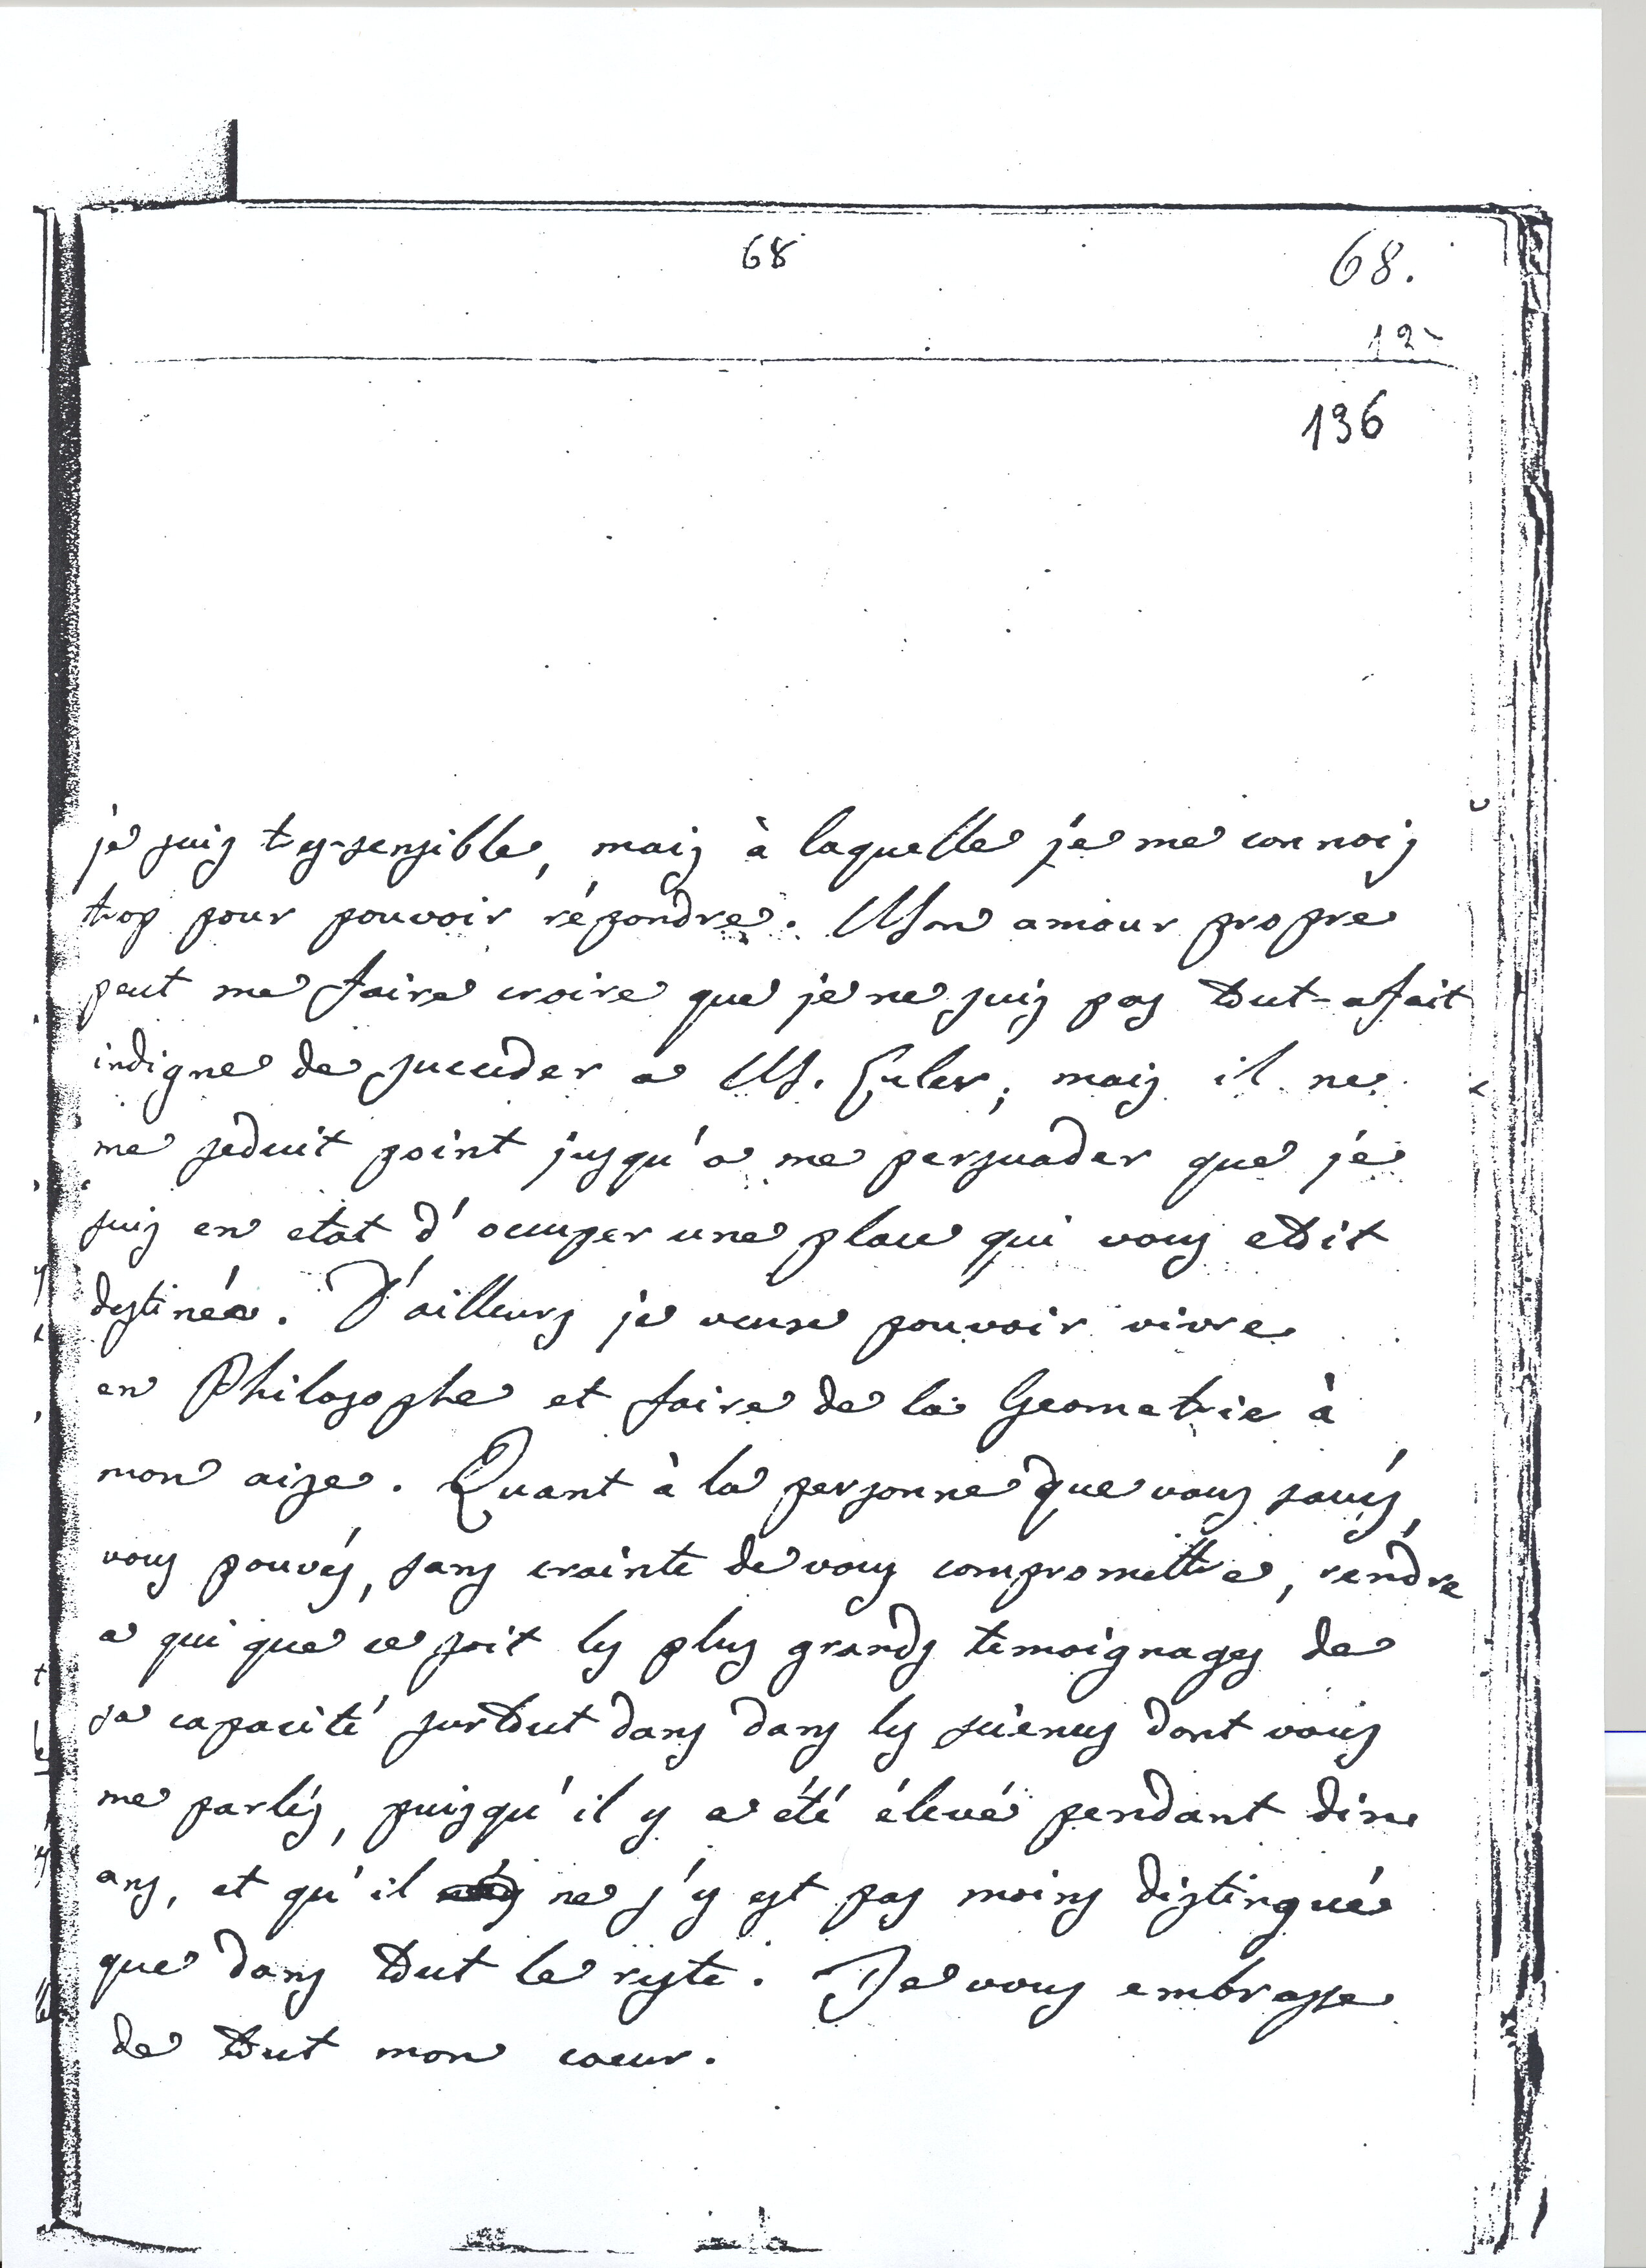 68
68.
12
136
je suis tres-sensible, mais à laquelle je me connois
trop pour pouvoir répondre. Mon amour propre
peut me faire croire que je ne suis pas tout-a fait
indigne de succeder a M. Euler; mais il ne
me seduit point jusqu'a me persuader que je
suis en etat d'occuper une place qui vous etoit
destinée. D'ailleurs je veux pouvoir vivre
en Philosophe et faire de la Geometrie à
mon aise. Quant à la personne que vous savés,
vous pouvés, sans crainte de vous compromettre, rendre
a qui que ce soit les plus grands temoignages de
sa capacité surtout dans dans les sciences dont vous
me parlés, puisqu'il y a été élevé pendant dix
ans, et qu'il ne s'y est pas moins distingué
que dans tout le reste. Je vous embrasse
de tout mon coeur.